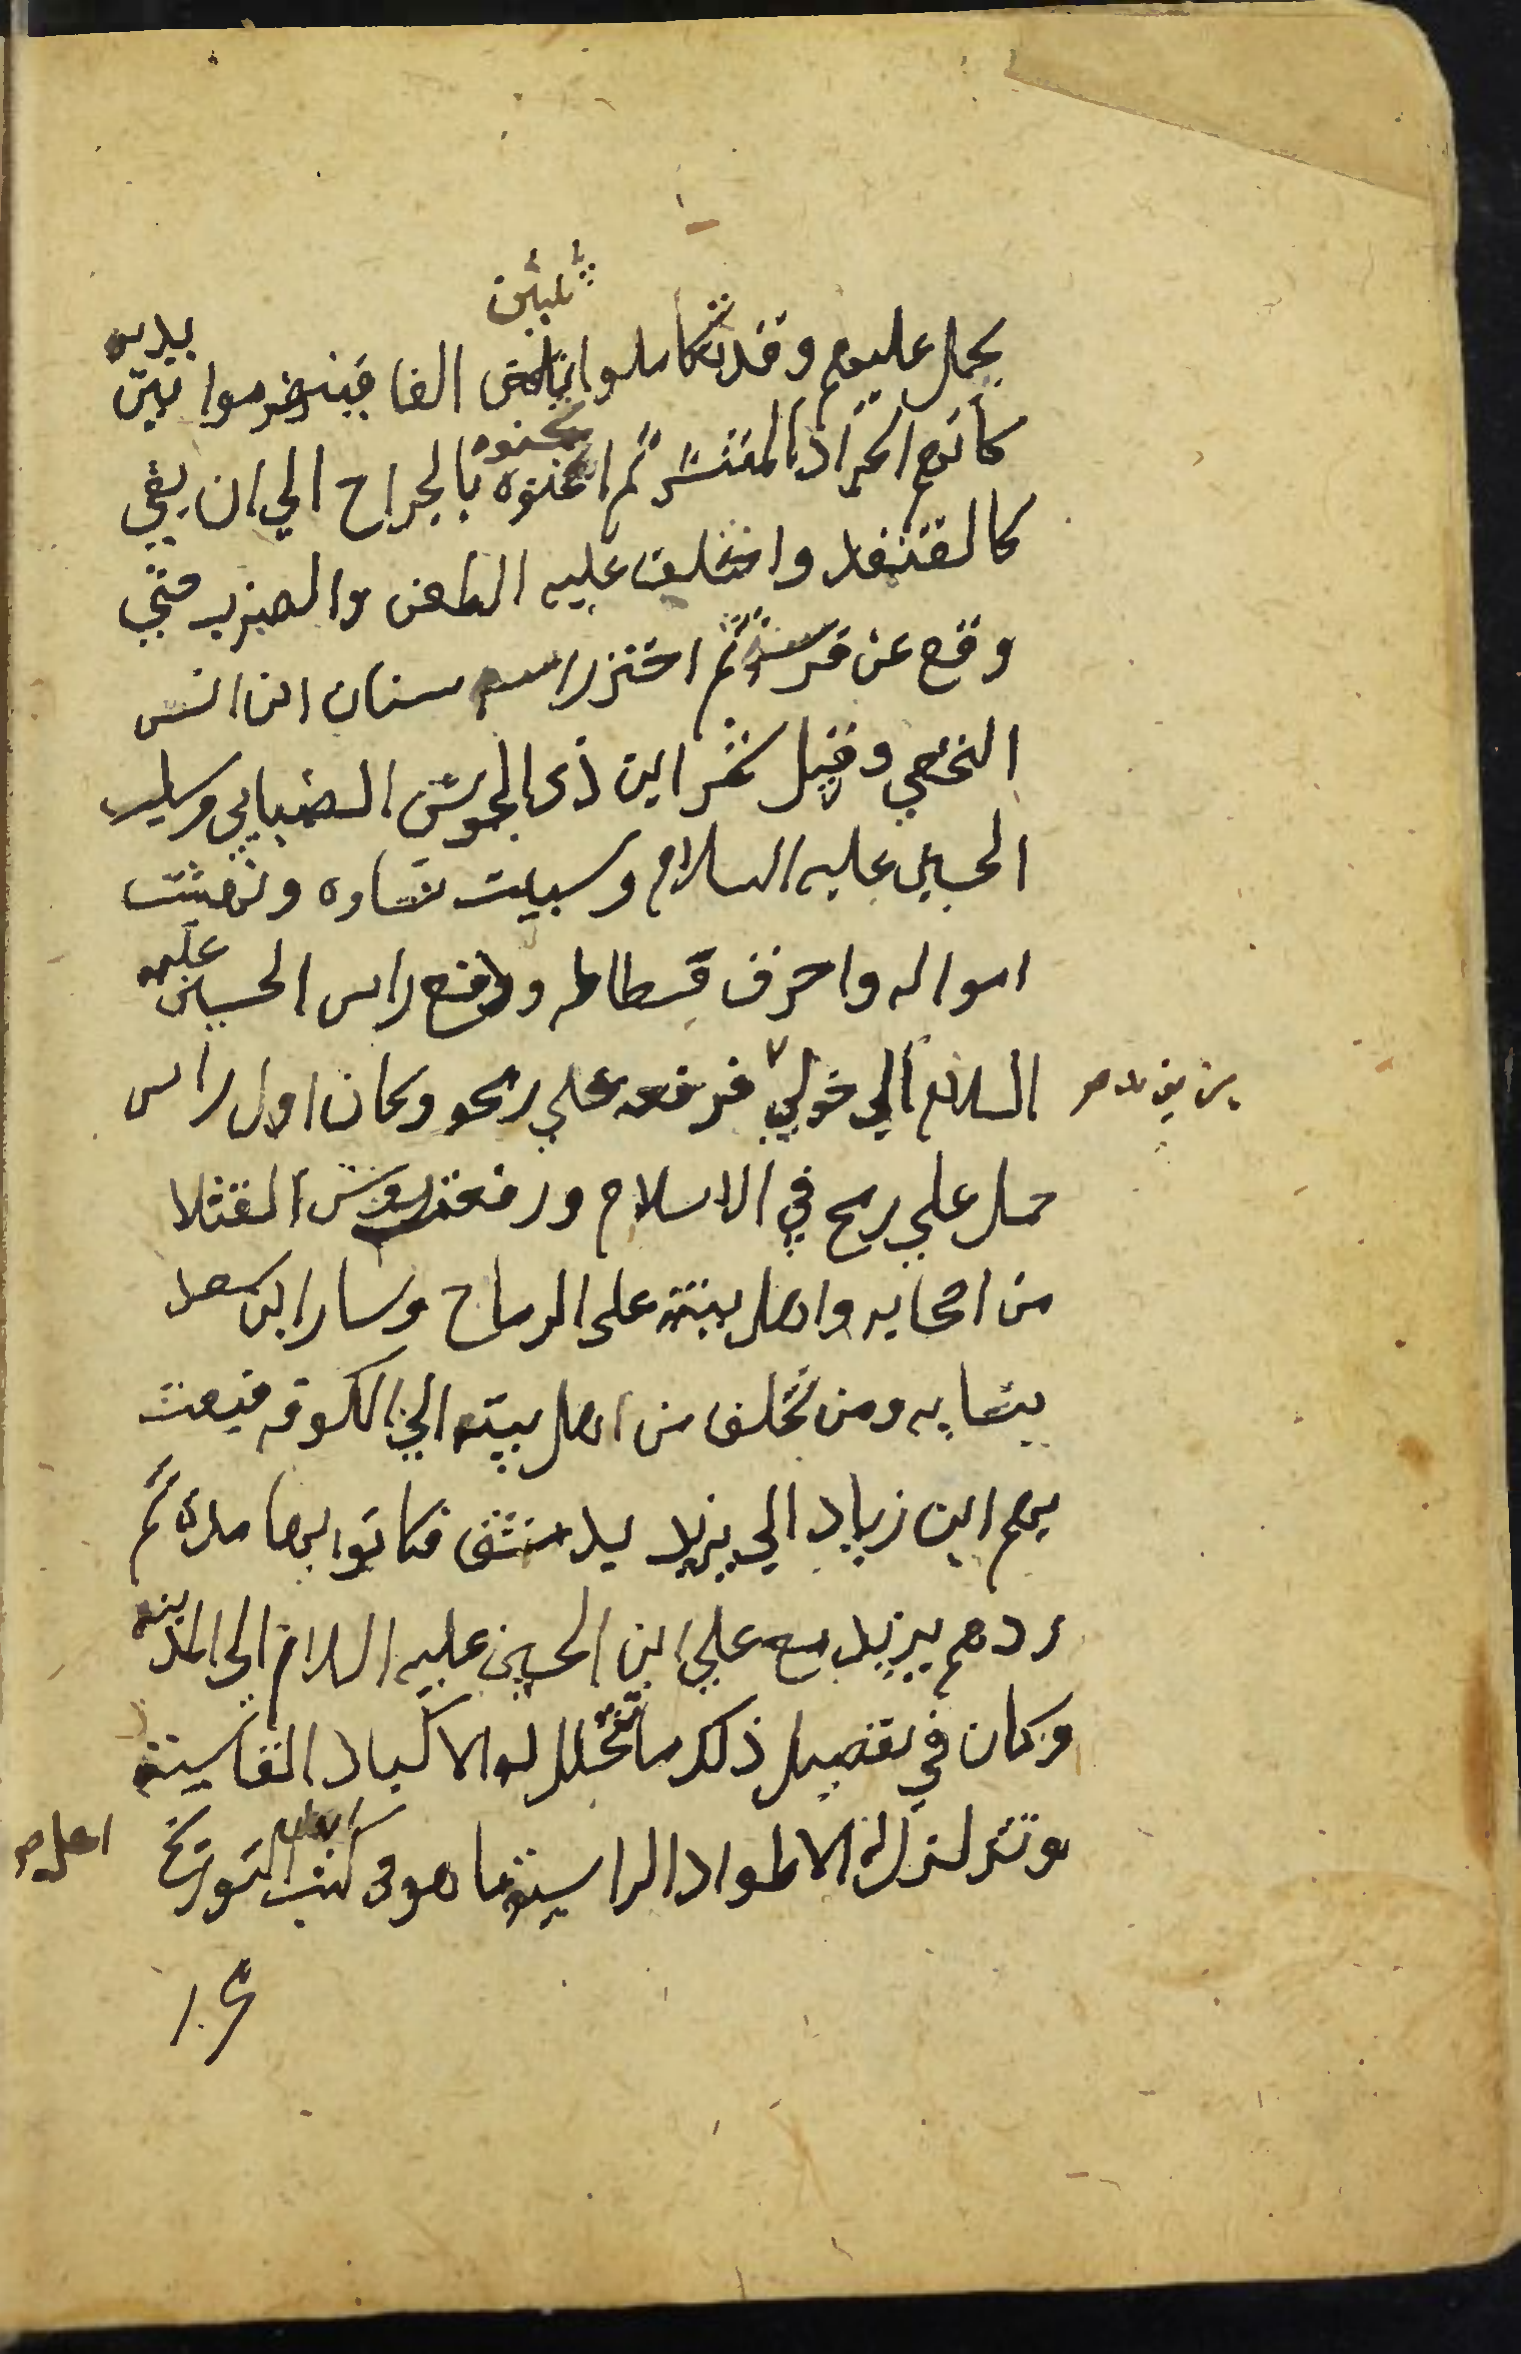 ثلثين
يحمل عليهم وقد تكاملوا ثلثين الفا فينهزموا بين يديه
كانهم الجراد المنتشر ثم اثخنوه بالجراح الي ان بقي
كالقنفد واختلف عليه الطعن والضرب حتي
وقع عن فرسه ثم احتز راسه سنان ابن انس
النخعي وقيل شمر ابن ذي الجوشن الضبابي وسلب
الحسين عليه السلام وسبيت نساوه ونهبت
امواله واحرق فسطاطه ودفع راس الحسين عليه
السلام الي خولي فرفعه علي رمحو وكان اول راس
بن يزيد صح
حمل علي رمح في الاسلام ورفعة روس القتلا
من اصحابه واهل بيته على الرماح وسار ابن سعد
بنسايه ومن تخلف من اهل بيته الي الكوفه فبعث
بهم ابن زياد الي يزيد بدمشق فكانوا بها مدة ثم
ردهم يزيد مع علي ابن الحسين عليه السلام الى المدينه
وكان في تفصيل ذلك ما تتخلل له الاكباد القاسية
وتزلزل له الاطواد الراسية ما هو في كتب التورايخ
اهل صح